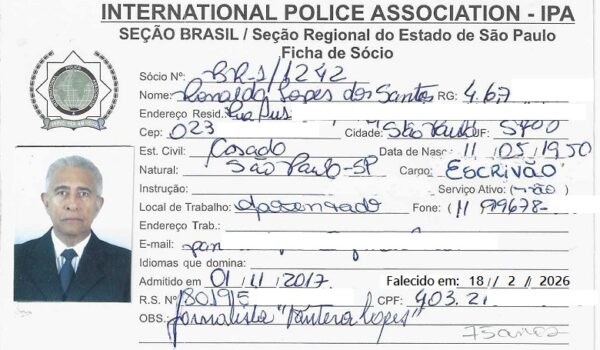 INTERNATIONAL POLICE ASSOCIATION - IPA
SEÇÃO BRASIL / Seção Regional do Estado de São Paulo
Ficha de Sócio
Sócio Nº: BR-1/1242
Nome: Ronaldo Lopes dos Santos RG: 4.67
Endereço Resid. Rua
Cep: 023 Cidade: São Paulo UF:
Est. Civil: Casado Data de Nasc 11/05/1950
Natural: São Paulo-SP Cargo: ESCRIVÃO
Instrução: Serviço Ativo: (não)
Local de Trabalho: aposentado Fone: (11 99678-
Endereço Trab.:
E-mail: pan
Idiomas que domina:
Admitido em 01/11/2017. Falecido em: 18 / 2 / 2026
R.S. Nº 180195 CPF: 903.21
OBS.: Jornalista "Pantera Lopes"
75 anos